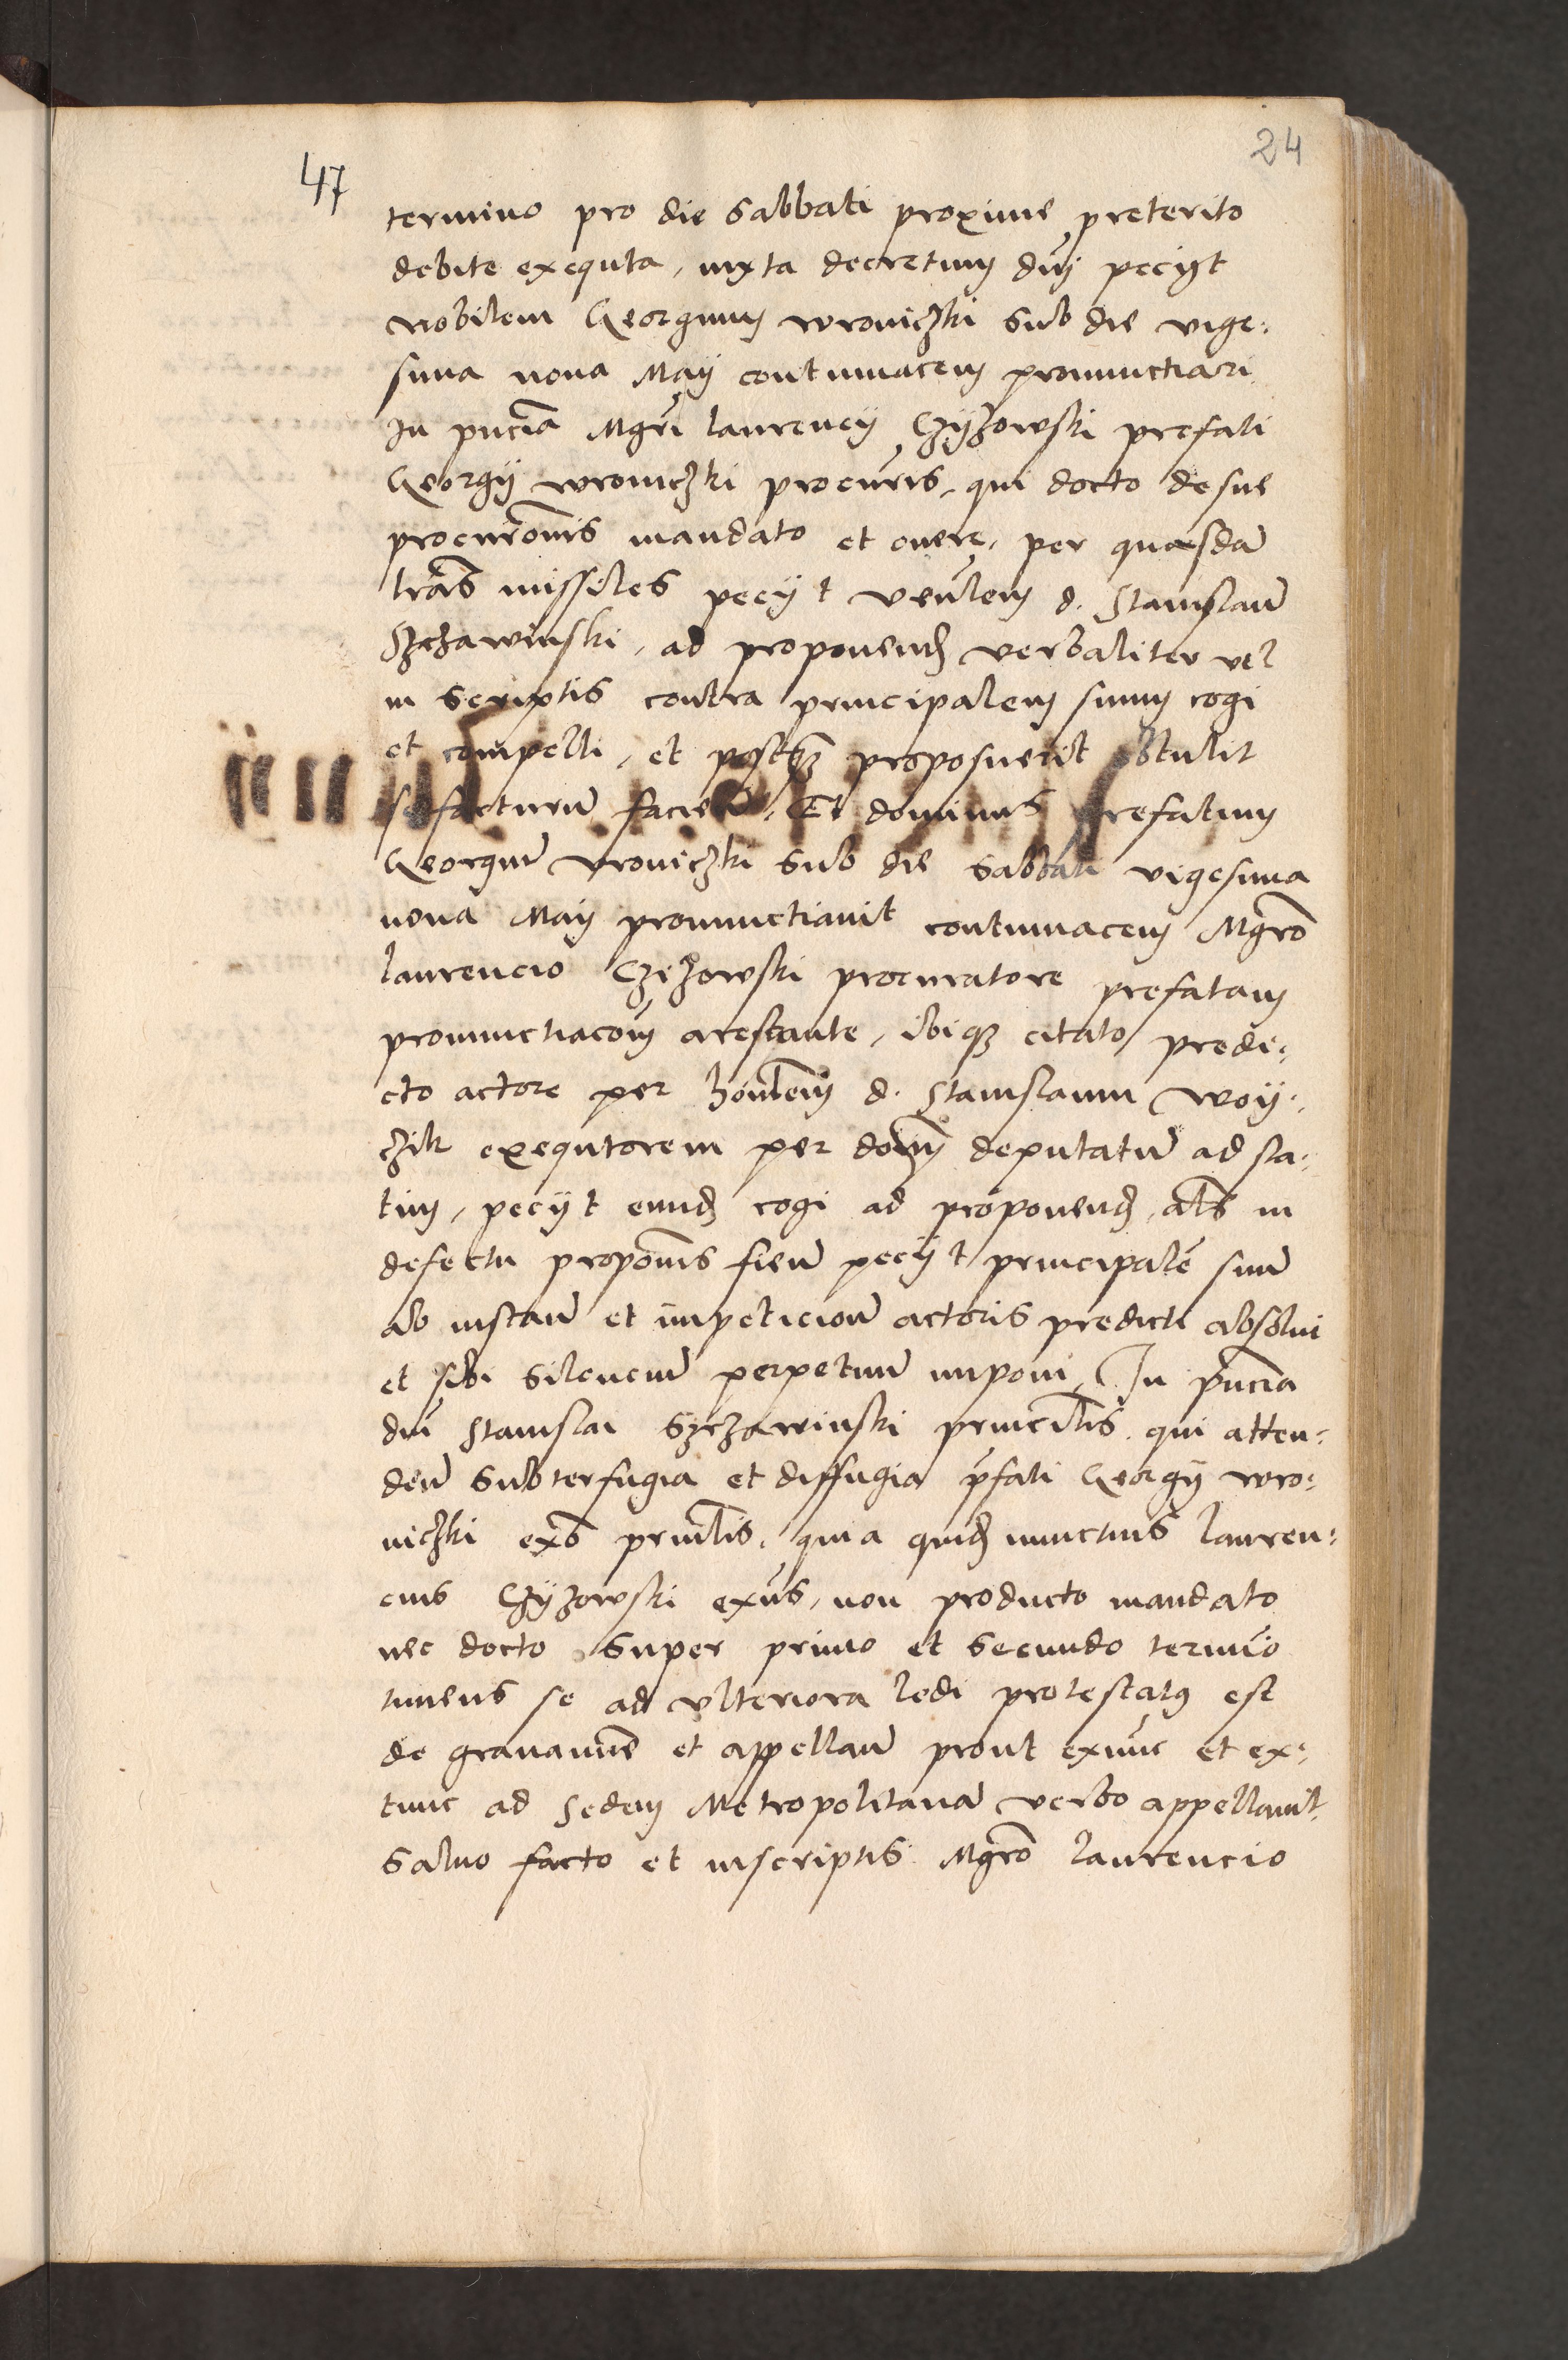 24
47
termino pro die sabbati proxime preterito
debite exequta, iuxta decretum dni pecyt
nobilem Georgium wroniczki sub die vige:
sima nona Maij contumacem pronunctiari
In pncia Mgri laurencij Czyzowski prefati
Georgij wroniczki procuris, qui docto de sue
procurõnis mandato et onere, per quasdã
lrãs missiles pecyt venlem d. Stanislaũ
Szczawinski, ad proponend verbaliter vel
in scriptis contra principalem suum cogi
et compelli, et postqз proposuerit obtulit
se facturũ Et dominus prefatum
Georgiũ vroniczki sub die sabbati vigesima
nona Maij pronunctiavit contumacem Mgrõ
laurencio Czizowski procuratore prefatam
pronunctiacõm arestante, ibiqз citato predi:
cto actore per honlem d. Stanislaum woy:
czik exequtorem per dõm deputatũ ad sta:
tim, pecyt eund cogi ad proponend, als in
defectu proponis fieñ pecyt principalẽ suũ
ab instañ et impeticioñ actoris predicti absolui
et sibi silenciũ perpetuũ imponi, In pncia
dni Stanislai Szczawinski princilis qui atten:
deñ subterfugia et diffugia pfati Georgij wro:
niczki exs prinlis, quia quid nunctius lauren:
cius Czyzowski exñs, non producto mandato
nec docto super primo et secundo termio
timens se ad vlteriora ledi protestatꝯ est
de grauamine et appellañ prout exnunc et ex:
tunc ad sedem Metropolitanã verbo appellauit
saluo facto et inscriptis Mgrõ laurencio